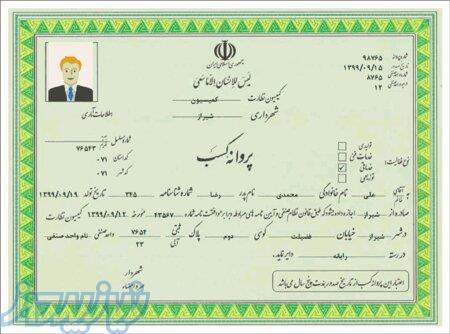 جمهوری اسلامی ایران
لیس للانسان الا ما سعی
کمیسیون نظارت کمیسیون
شهرداری شیراز
شماره پروانه ۹۸۷۶۵
تاریخ صدور ۱۳۹۹/۰۹/۱۵
۸۷۶۵
۱۲
اطلاعات آماری
شماره مسلسل ۷۶۵۴۳
کد استان ۰۷۱
کد شهر ۰۷۱
پروانه کسب
نوع فعالیت:
تولیدی
خدمات فنی
خدماتی
توزیعی
آقای خانم علی نام خانوادگی محمدی نام پدر رضا شماره شناسنامه ۳۴۵ تاریخ تولد ۱۳۹۹/۰۹/۱۹
صادره از شیراز اجازه داده میشود که طبق قانون نظام صنفی و آیین نامه های مربوطه برابر موافقت نامه شماره ۴۳۵۶۷ مورخه ۱۳۹۹/۰۹/۱۲ کمیسیون نظارت
در شهر شیراز خیابان فضیلت کوی دوم پلاک ثبتی آبی ۷۶۵۴ ۲۳ واحد صنفی نام واحد صنفی
در رسته رایانه دایر نماید.
اعتبار این پروانه کسب از تاریخ صدور بمدت پنج سال می باشد
شهردار
مهر و امضاء
نیازپرداز